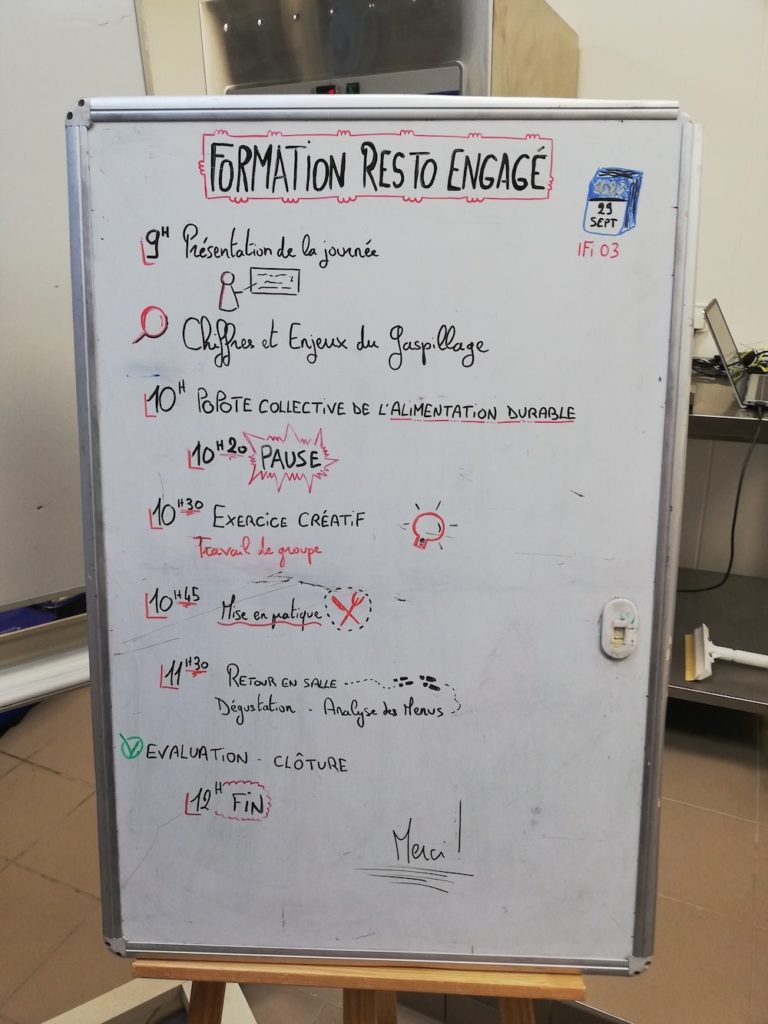 FORMATION RESTO ENGAGÉ
29
SEPT
IFi 03
9H Présentation de la journée
Chiffres et Enjeux du Gaspillage
10H POPOTE COLLECTIVE DE L'ALIMENTATION DURABLE
10H20 PAUSE
10H30 EXERCICE CRÉATIF
Travail de groupe
10H45 Mise en pratique
11H30 RETOUR EN SALLE
Dégustation - Analyse des Menus
EVALUATION - CLÔTURE
12H FIN
Merci !